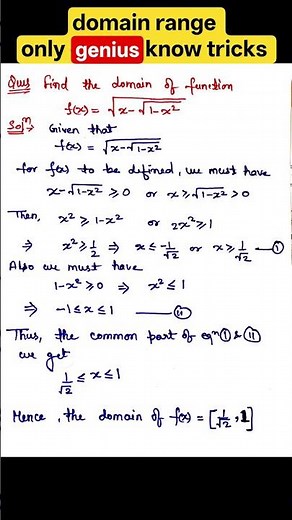 domain range
only genius know tricks
Ques Find the domain of function
f(x) = √(x-√(1-x²))
Solⁿ→ Given that
f(x) = √(x-√(1-x²))
for f(x) to be defined, we must have
x-√(1-x²) ⩾ 0 or x ⩾ √(1-x²) > 0
Then, x² ⩾ 1-x² or 2x² ⩾ 1
⇒ x² ⩾ 1/2 ⇒ x ≤ -1/√2 or x ⩾ 1/√2 — ①
Also we must have
1-x² ⩾ 0 ⇒ x² ≤ 1
⇒ -1 ≤ x ≤ 1 — ⑪
Thus, the common part of eqⁿ ① & ⑪
we get
1/√2 ≤ x ≤ 1
Hence, the domain of f(x) = [1/√2, 1]